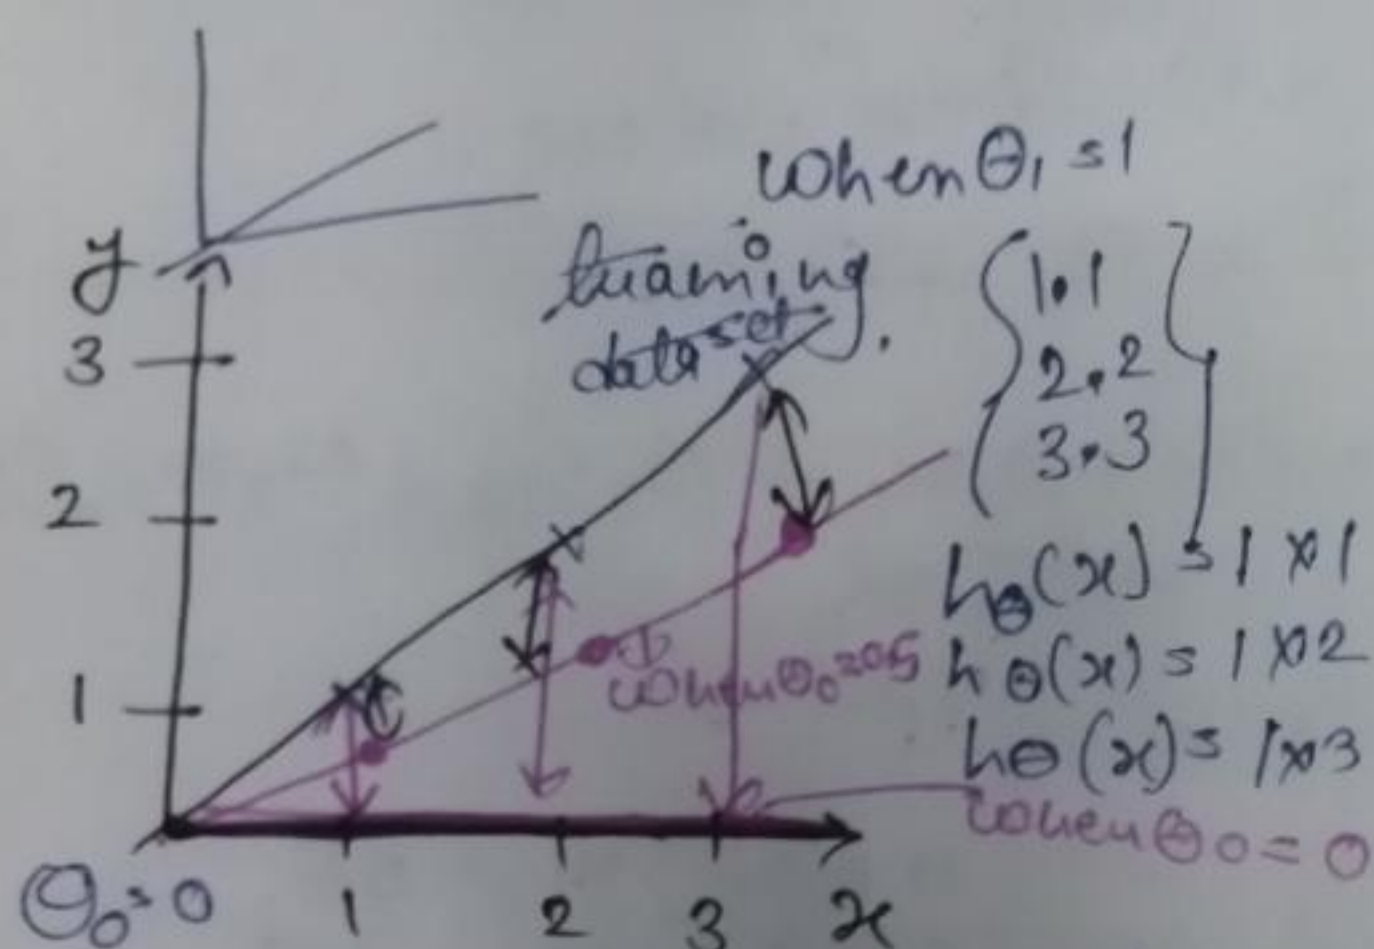 when θ₁ = 1
y
training
dataset.
1.1
2.2
3.3
3
2
1
hθ(x) = 1 x 1
hθ(x) = 1 x 2
hθ(x) = 1 x 3
when θ₀ = 0.5
when θ₀ = 0
θ₀ = 0
1 2 3 x